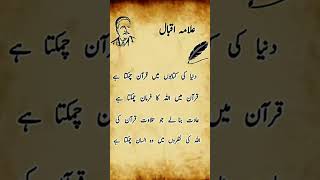 علامہ اقبال
دنیا کی کتابوں میں قرآن چمکتا ہے
قرآن میں اللہ کا فرمان چمکتا ہے
عادت بنا لے جو تلاوت قرآن کی
اللہ کی نظروں میں وہ انسان چمکتا ہے